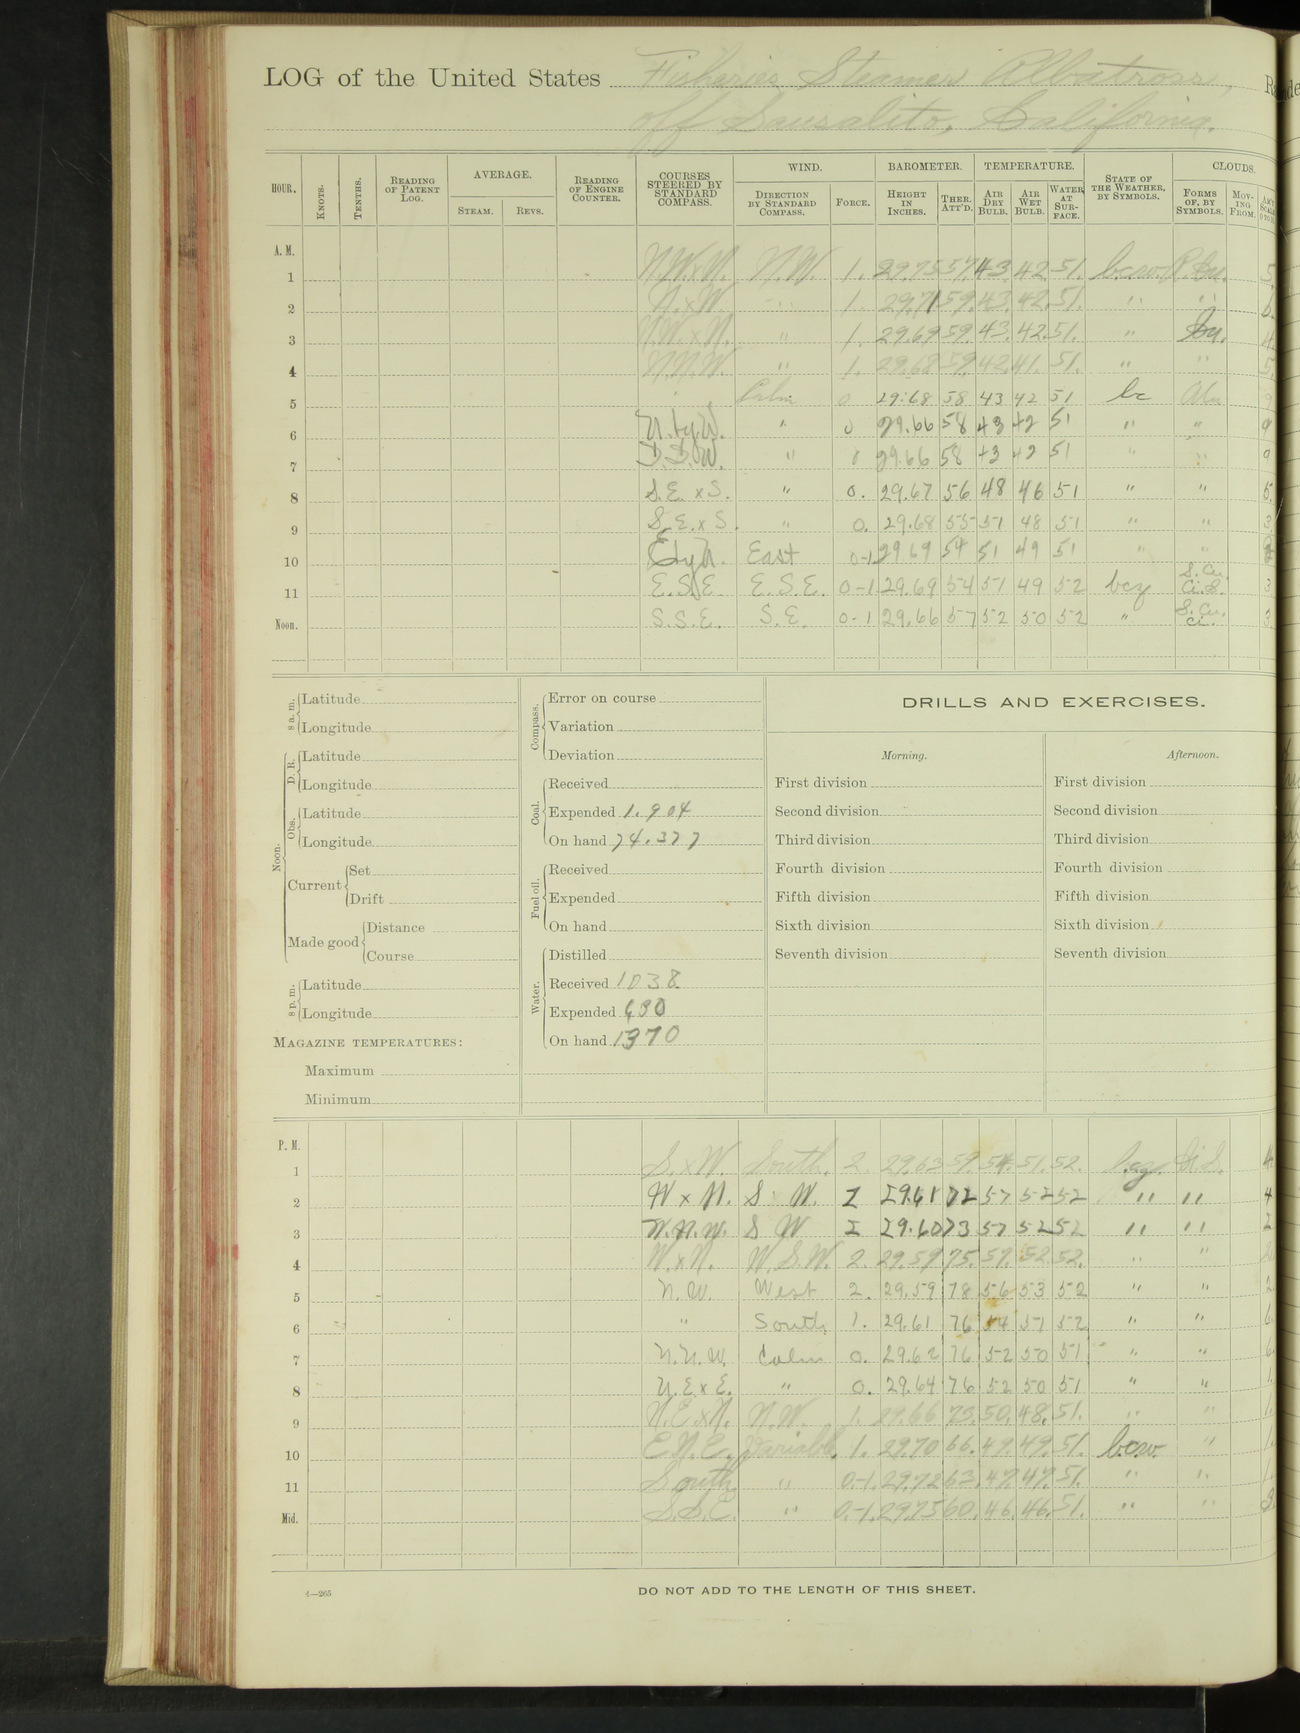 LOG of the United States Fisheries Steamer Albatross, R
off Sausalito, California.
HOUR. KNOTS. TENTHS. READING OF PATENT LOG. AVERAGE. STEAM. REVS. READING OF ENGINE COUNTER. COURSES STEERED BY STANDARD COMPASS. WIND. DIRECTION BY STANDARD COMPASS. FORCE. BAROMETER. HEIGHT IN INCHES. THER. ATT'D. TEMPERATURE. AIR DRY BULB. AIR WET BULB. WATER AT SURFACE. STATE OF THE WEATHER, BY SYMBOLS. CLOUDS. FORMS OF, BY SYMBOLS. MOVING FROM.
A. M.
1 N.W.xN. N.W. 1. 29.75 57 43 42 51. bcw 5
2 N.xW. " 1. 29.71 59. 43. 42. 51. " " 6.
3 N.W.xN. " 1. 29.69 59. 43. 42. 51. " Cu. 4.
4 N.N.W. " 1. 29.68 59 42. 41. 51. " " 5.
5 Calm 0 29.68 58 43 42 51 bc 9
6 N.byW. " 0 29.66 58 43 42 51 " " 9
7 " 0 29.66 58 43 42 51 " " 9
8 S.E. x S. " 0. 29.67 56 48 46 51 " " 5
9 S.E. x S. " 0. 29.68 55 51 48 51 " " 3
10 EbyN. East 0-1 29.69 54 51 49 51 " "
11 E.S.E. E.S.E. 0-1 29.69 54 51 49 52 bcz S.Cu. Ci.S. 3
Noon. S.S.E. S.E. 0-1 29.66 57 52 50 52 " S.Cu. Ci. 3.
8 a. m. Latitude
Longitude
Noon. D. R. Latitude
Longitude
Obs. Latitude
Longitude
Current Set
Drift
Made good Distance
Course
8 p. m. Latitude
Longitude
MAGAZINE TEMPERATURES:
Maximum
Minimum
Compass. Error on course
Variation
Deviation
Coal. Received
Expended 1.904
On hand 74.377
Fuel oil. Received
Expended
On hand
Water. Distilled
Received 1038
Expended 680
On hand 1370
DRILLS AND EXERCISES.
Morning. Afternoon.
First division First division
Second division Second division
Third division Third division
Fourth division Fourth division
Fifth division Fifth division
Sixth division Sixth division
Seventh division Seventh division
P. M.
1 S.xW. South. 2. 29.63 59. 54. 51. 52. bcz. Ci.S. 4
2 W x N. S W. 2 29.61 72 57 52 52 " " 4
3 W.N.W. S W 2 29.60 73 57 52 52 " " 2
4 W.xN. W.S.W. 2. 29.59 75. 57. 52. 52. " " 2
5 N.W. West 2. 29.59 78 56 53 52 " " 2
6 " South 1. 29.61 76 54 51 52 " " 6
7 N.N.W. Calm 0. 29.62 76 52 50 51 " " 6
8 N.E x E. " 0. 29.64 76 52 50 51 " " 1.
9 N.E.xN. N.W. 1. 29.66 73. 50. 48. 51. " " 1.
10 E.N.E. Variable. 1. 29.70 66. 49. 49. 51. bcw. " 1.
11 South " 0-1. 29.72 63. 47. 47. 51. " " 1.
Mid. S.S.E. " 0-1. 29.75 60. 46. 46. 51. " " 3
4—265
DO NOT ADD TO THE LENGTH OF THIS SHEET.